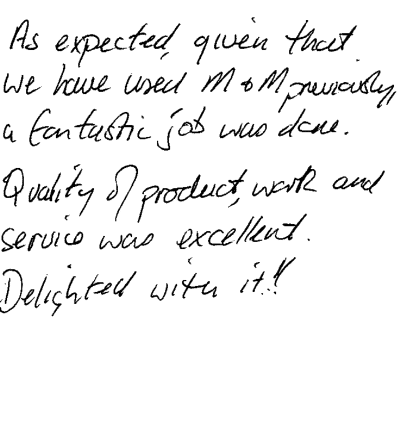 As expected, given that
we have used M & M previously,
a fantastic job was done.
Quality of product, work and
service was excellent.
Delighted with it!!